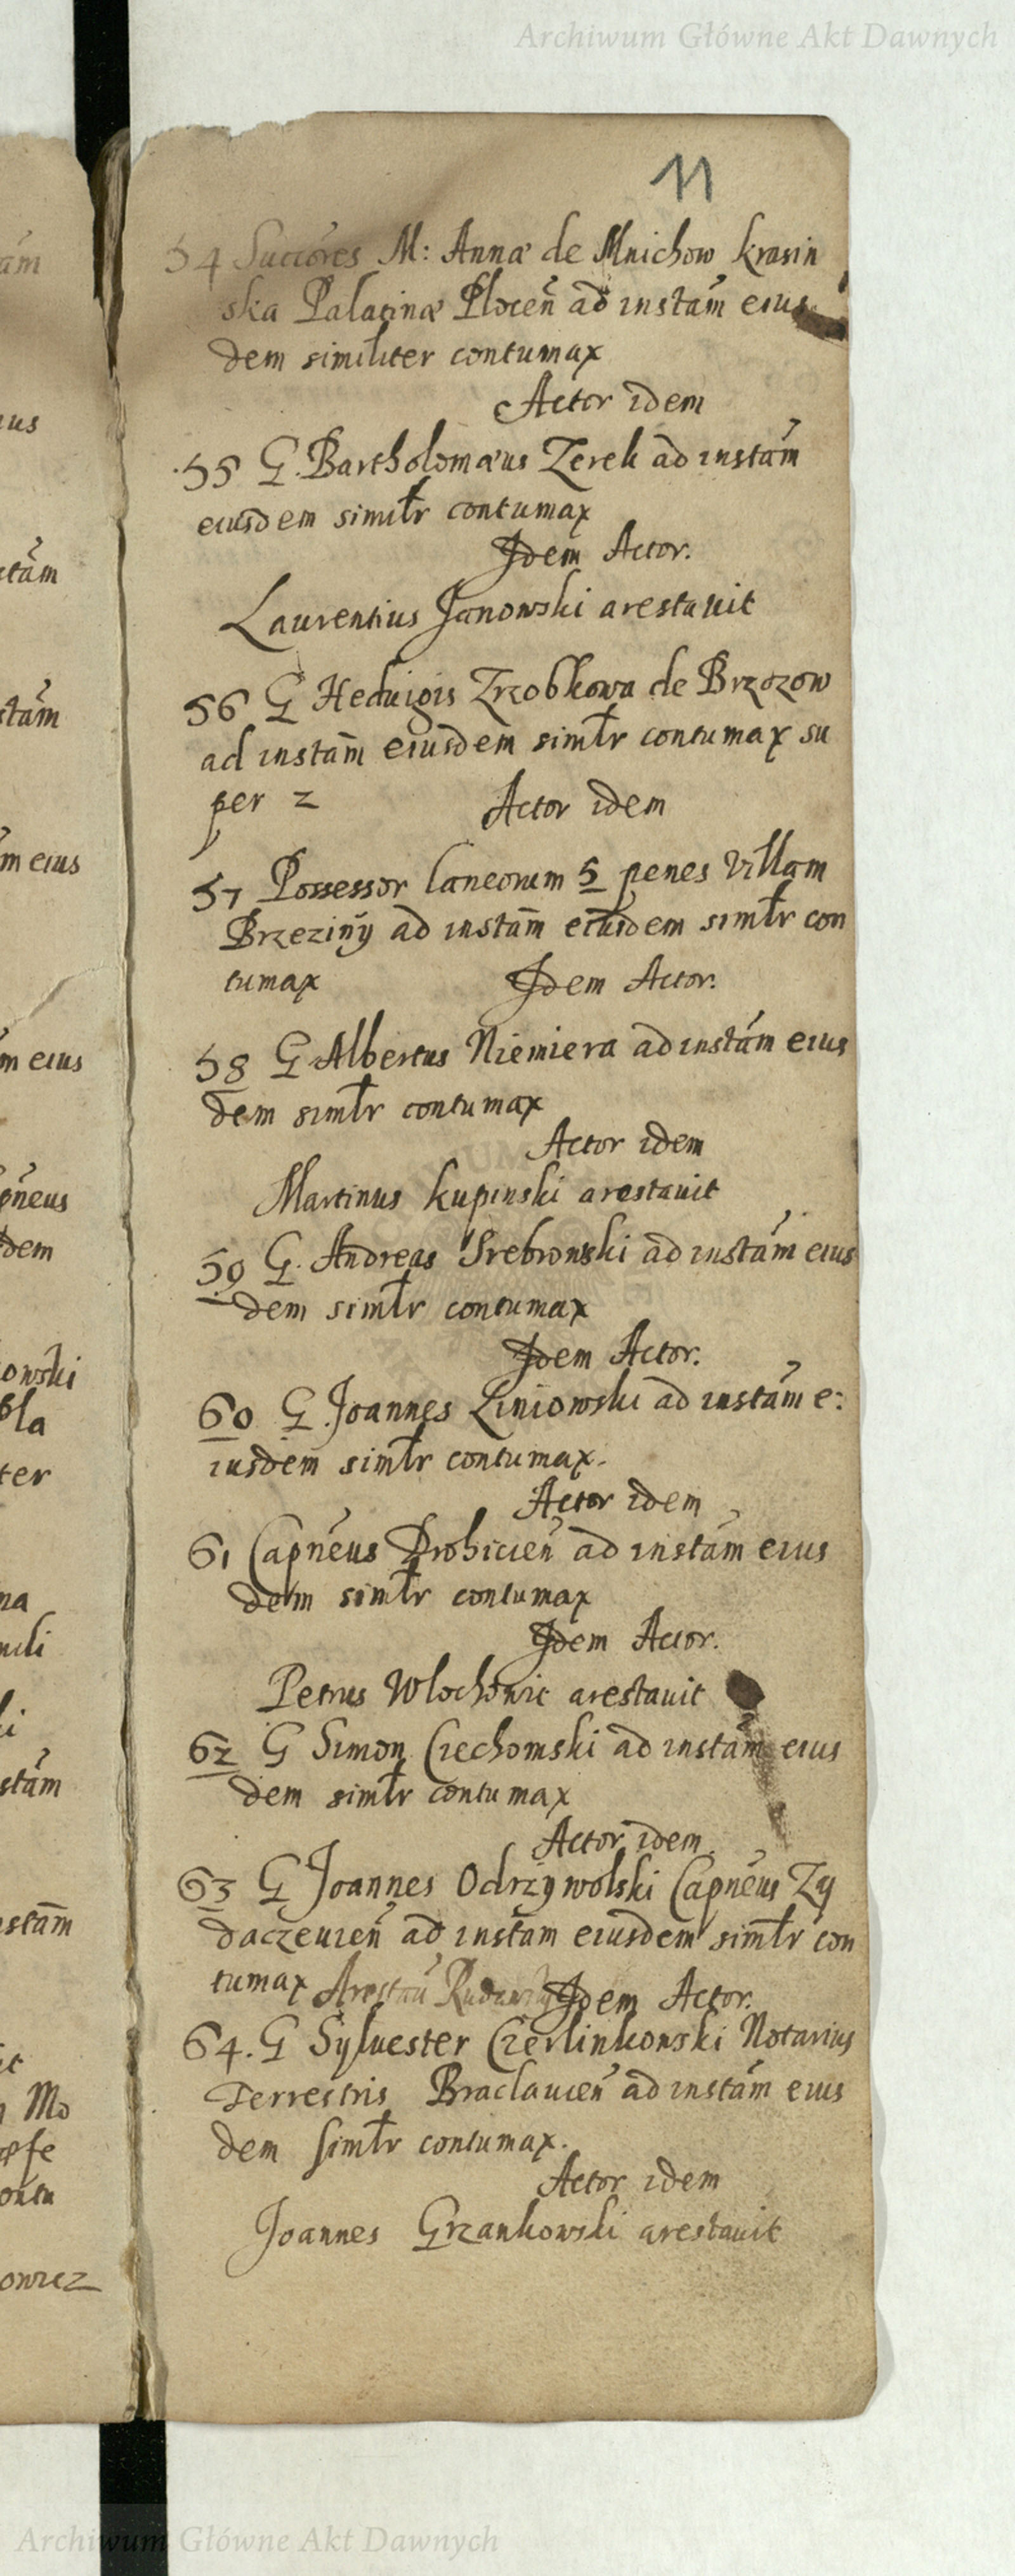 Archiwum Główne Akt Dawnych
11
54 Succores M: Annæ de Mnichow krasin
ska Palatinæ Plocen̄ ad instām eius
dem similiter contumax
Actor idem
55 G. Bartholomæus Zerek ad instām
eiusdem simil̄r contumax
Idem Actor.
Laurentius Janowski arestauit
56 G Heduigis Zrzobkowa de Brzozow
ad instam̄ eiusdem siml̄r contumax su
per 2 Actor idem
57 Possessor laneorum 5 penes Villam
Brzezinÿ ad instam̄ eiusdem siml̄r con
tumax Idem Actor.
58 G Albertus Niemiera ad instām eius
dem siml̄r contumax
Actor idem
Martinus kupinski arestauit
59 G. Andreas Srebrowski ad instām eius
dem siml̄r contumax
Idem Actor.
60 G. Joannes Liniowski ad instām e:
iusdem siml̄r contumax.
Actor idem
61 Capn̄eus Drohicien̄ ad instām eius
dem siml̄r contumax
Idem Actor.
Petrus Wlochowic arestauit
62 G Simon Ciechomski ad instām eius
dem siml̄r contumax
Actor idem
63 G Joannes Odrzywolski Capn̄eus Zy
daczeuien̄ ad instām eiusdem siml̄r con
tumax Arestau̅ Idem Actor.
64. G Syluester Czerlinkowski Notarius
Terrestris Braclauien̄ ad instām eius
dem siml̄r contumax.
Actor idem
Joannes Grzankowski arestauit
Archiwum Główne Akt Dawnych